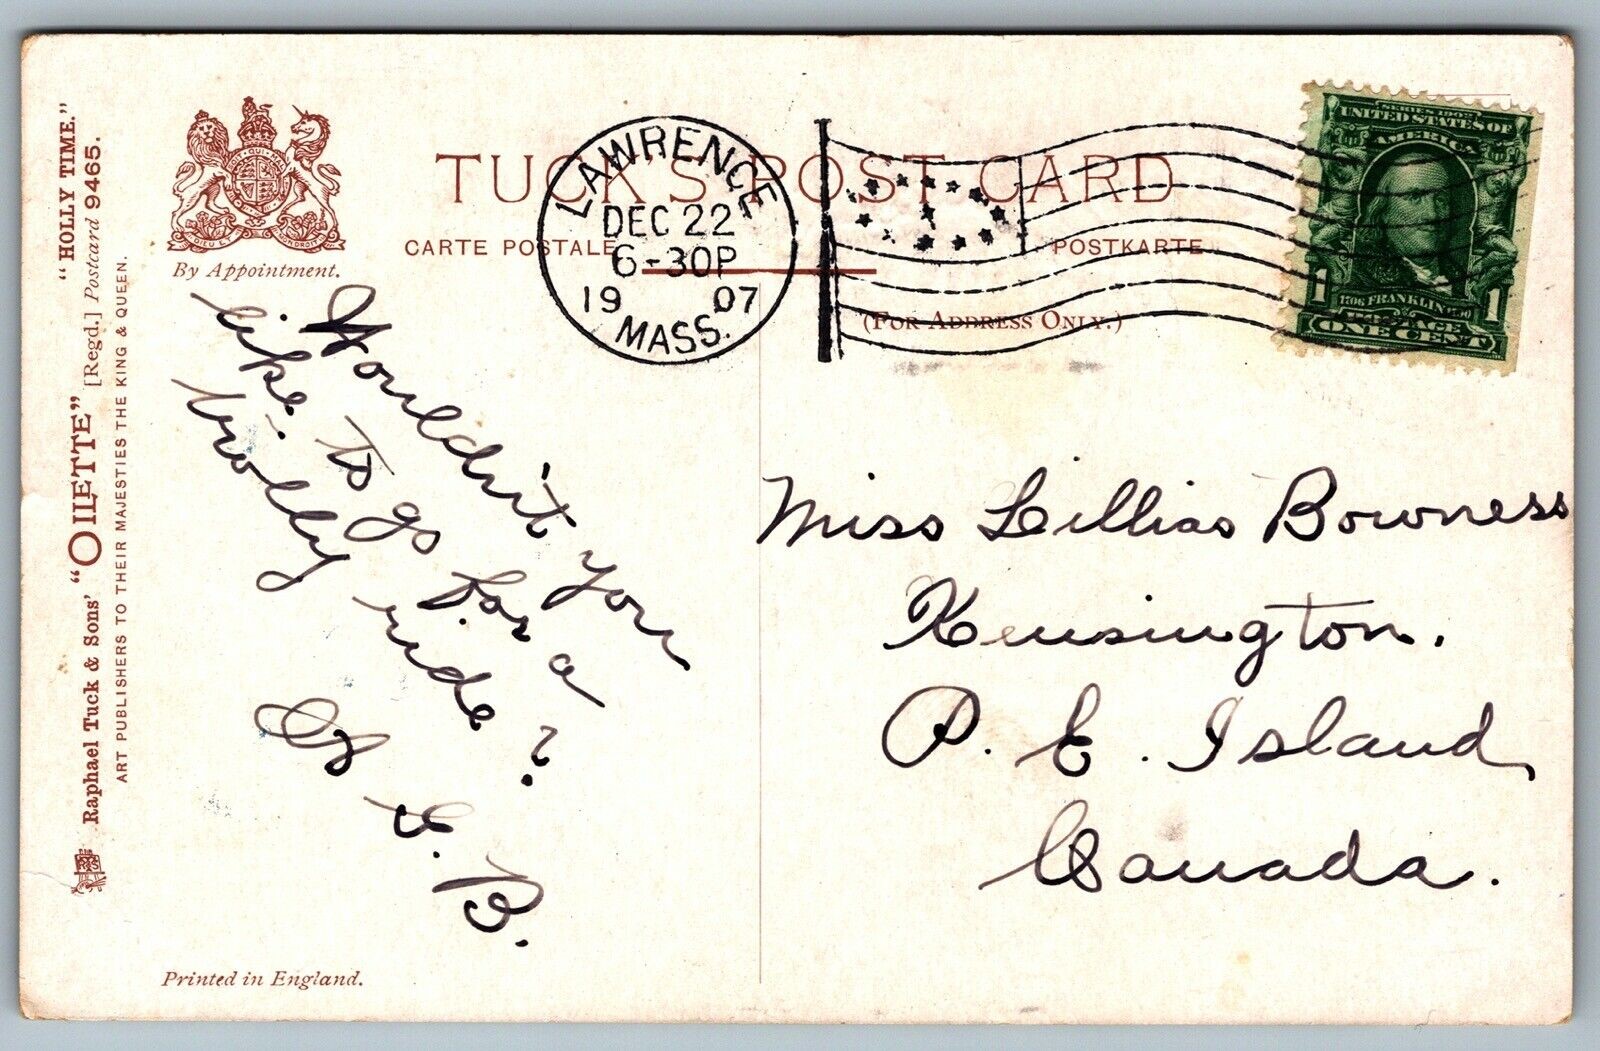 "HOLLY TIME."
[Regd.] Postcard 9465.
Raphael Tuck & Sons' "OILETTE"
ART PUBLISHERS TO THEIR MAJESTIES THE KING & QUEEN.
DIEU ET MON DROIT
By Appointment.
TUCK'S POST CARD
CARTE POSTALE
POSTKARTE
(FOR ADDRESS ONLY.)
LAWRENCE
DEC 22
6-30P
19 07
MASS.
SERIES 1902
UNITED STATES OF
AMERICA
1706 FRANKLIN 1790
POSTAGE
1 ONE CENT 1
Wouldn't you
like to go for a
trolly ride?
Miss Lillias Bowness
Kensington.
P. E. Island,
Canada.
Printed in England.